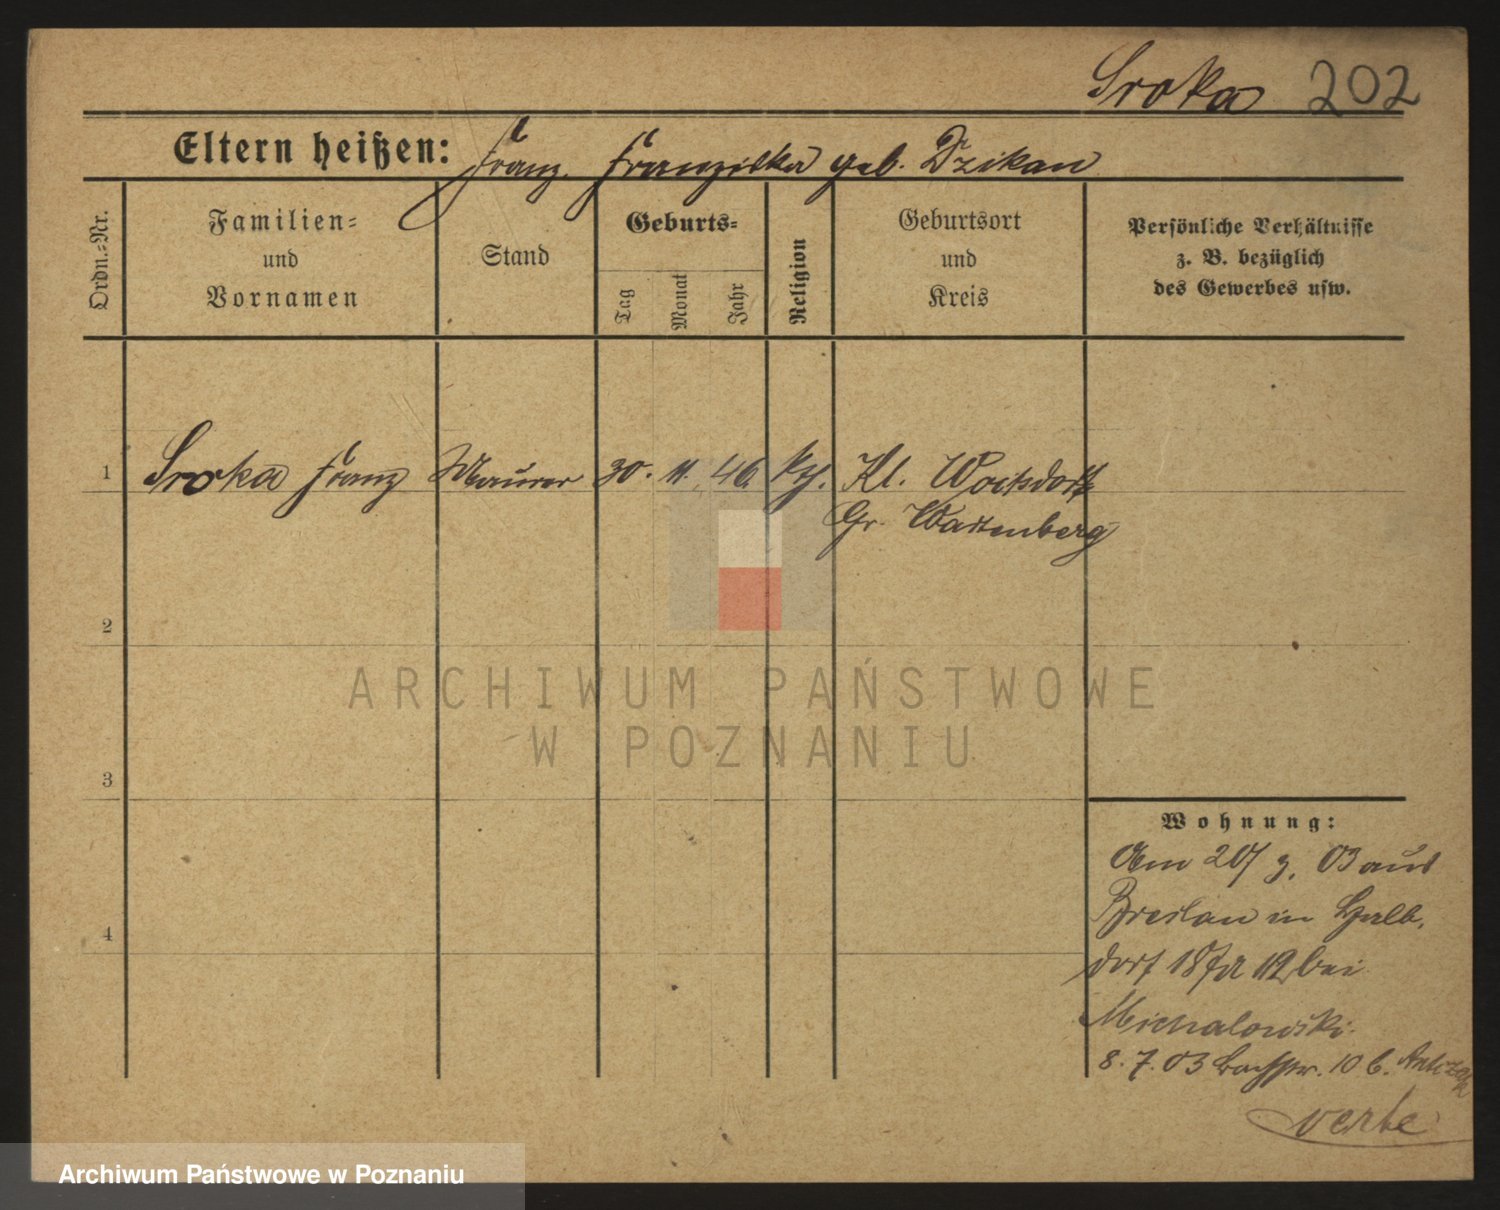 Sroka 202
Eltern heißen: Franz. Franziska geb. Dzikan
Ordn.-Nr.
Familien-
und
Vornamen
Stand
Geburts-
Tag
Monat
Jahr
Religion
Geburtsort
und
Kreis
Persönliche Verhältnisse
z. B. bezüglich
des Gewerbes usw.
1 Sroka Franz Maurer 30. 11. 46. kth. Kl. Woitsdorf
Gr. Wartenberg
2
3
4
Wohnung:
Am 20/3. 03 aus
Breslau in Halb-
dorf 18 bei
Michalowski.
8. 7. 03 Bachstr. 10 b.
verte
ARCHIWUM PAŃSTWOWE
W POZNANIU
Archiwum Państwowe w Poznaniu